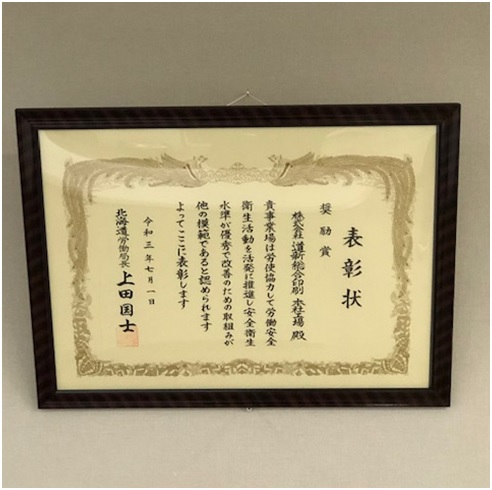 表彰状
奨励賞
株式会社 道新総合印刷 本社工場 殿
貴事業場は労使協力して労働安全
衛生活動を活発に推進し安全衛生
水準が優秀で改善のための取組みが
他の模範であると認められます
よってここに表彰します
令和三年七月一日
北海道労働局長 上田国士